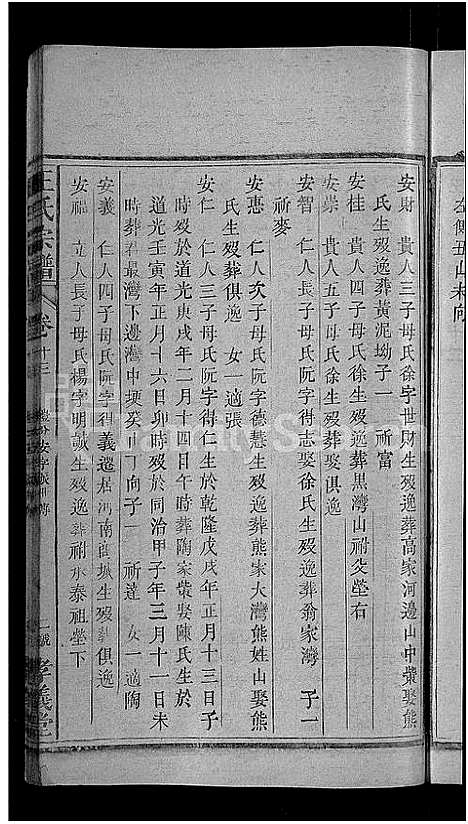 左傍丑山未向
安財 貴人三子母氏徐字世財生歿逸葬高家河邊山中塋娶熊
氏生歿逸葬黃泥坳子一 祈富
安桂 貴人四子母氏徐生歿逸葬黑灣山祔父塋右
安崇 貴人五子母氏徐生歿葬娶俱逸
安智 仁人長子母氏阮字得志娶徐氏生歿逸葬翁家灣 子一
祈麥
安惠 仁人次子母氏阮字德慧生歿逸葬熊家大灣熊姓山娶熊
氏生歿葬俱逸 女一適張
安仁 仁人三子母氏阮字得仁生於乾隆戊戌年正月十三日子
時歿於道光庚戌年二月十四日午時葬陶家塋娶陳氏生於
道光壬寅年正月十六日卯時歿於同治甲子年三月十一日未
時葬君最灣下邊灣中壕癸山丁向子一 祈達 女一適陶
安義 仁人四子母氏阮字得義遷居河南商城生歿葬俱逸
安福 立人長子母氏楊字明誠生歿逸葬祔永泰祖塋下
王氏宗譜 卷十三 孝義堂